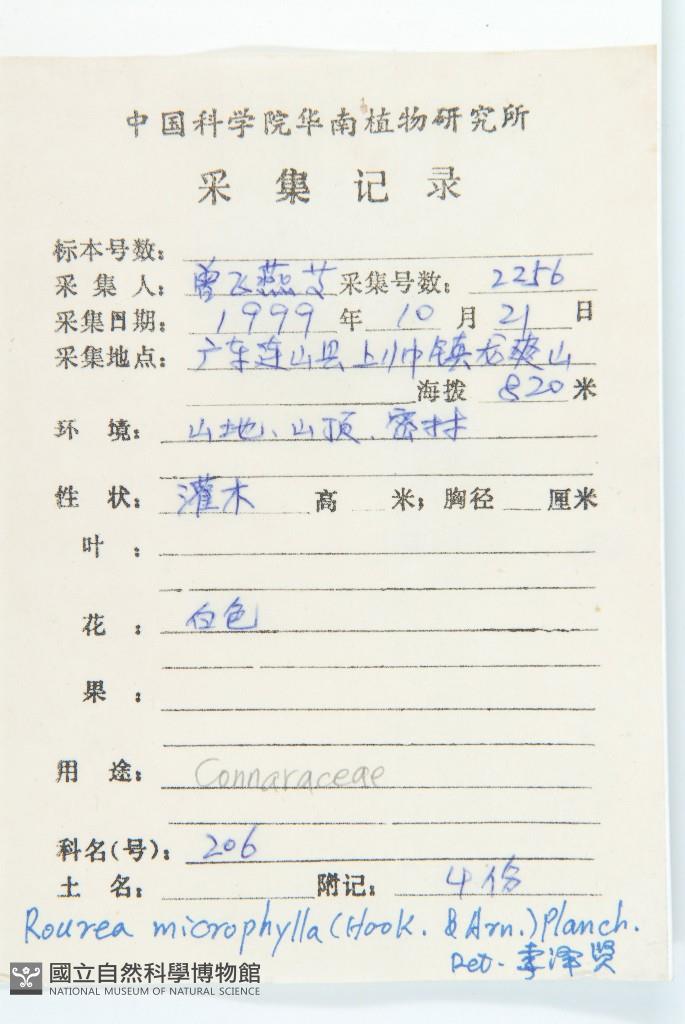 中国科学院华南植物研究所
采集记录
标本号数：
采集人：曾飞燕 采集号数：2256
采集日期：1999年10月21日
采集地点：广东连山县上帅镇龙爽山
海拨 820 米
环境：山地、山顶、密林
性状：灌木 高 米；胸径 厘米
叶：
花：白色
果：
用途：Connaraceae
科名(号)：206
土名： 附记：4份
Rourea microphylla (Hook. & Arn.) Planch.
Det. 李泽贤
國立自然科學博物館
NATIONAL MUSEUM OF NATURAL SCIENCE